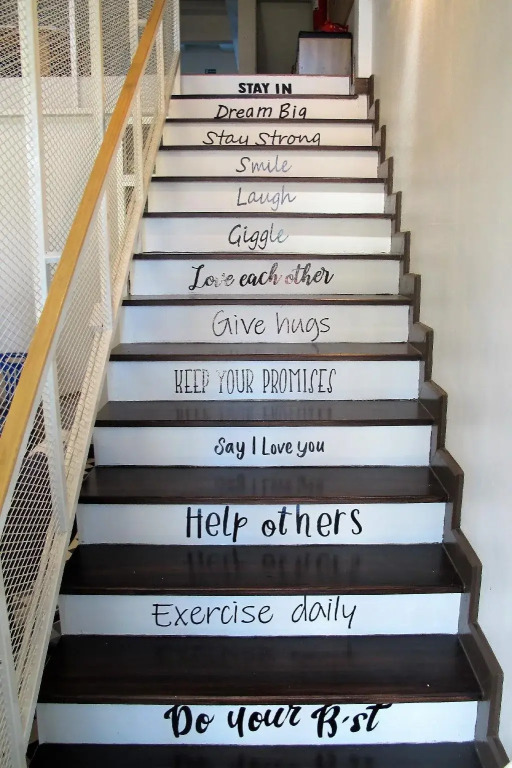 STAY IN
Dream Big
Stay Strong
Smile
Laugh
Giggle
Love each other
Give hugs
KEEP YOUR PROMISES
Say I Love you
Help others
Exercise daily
Do your B·st